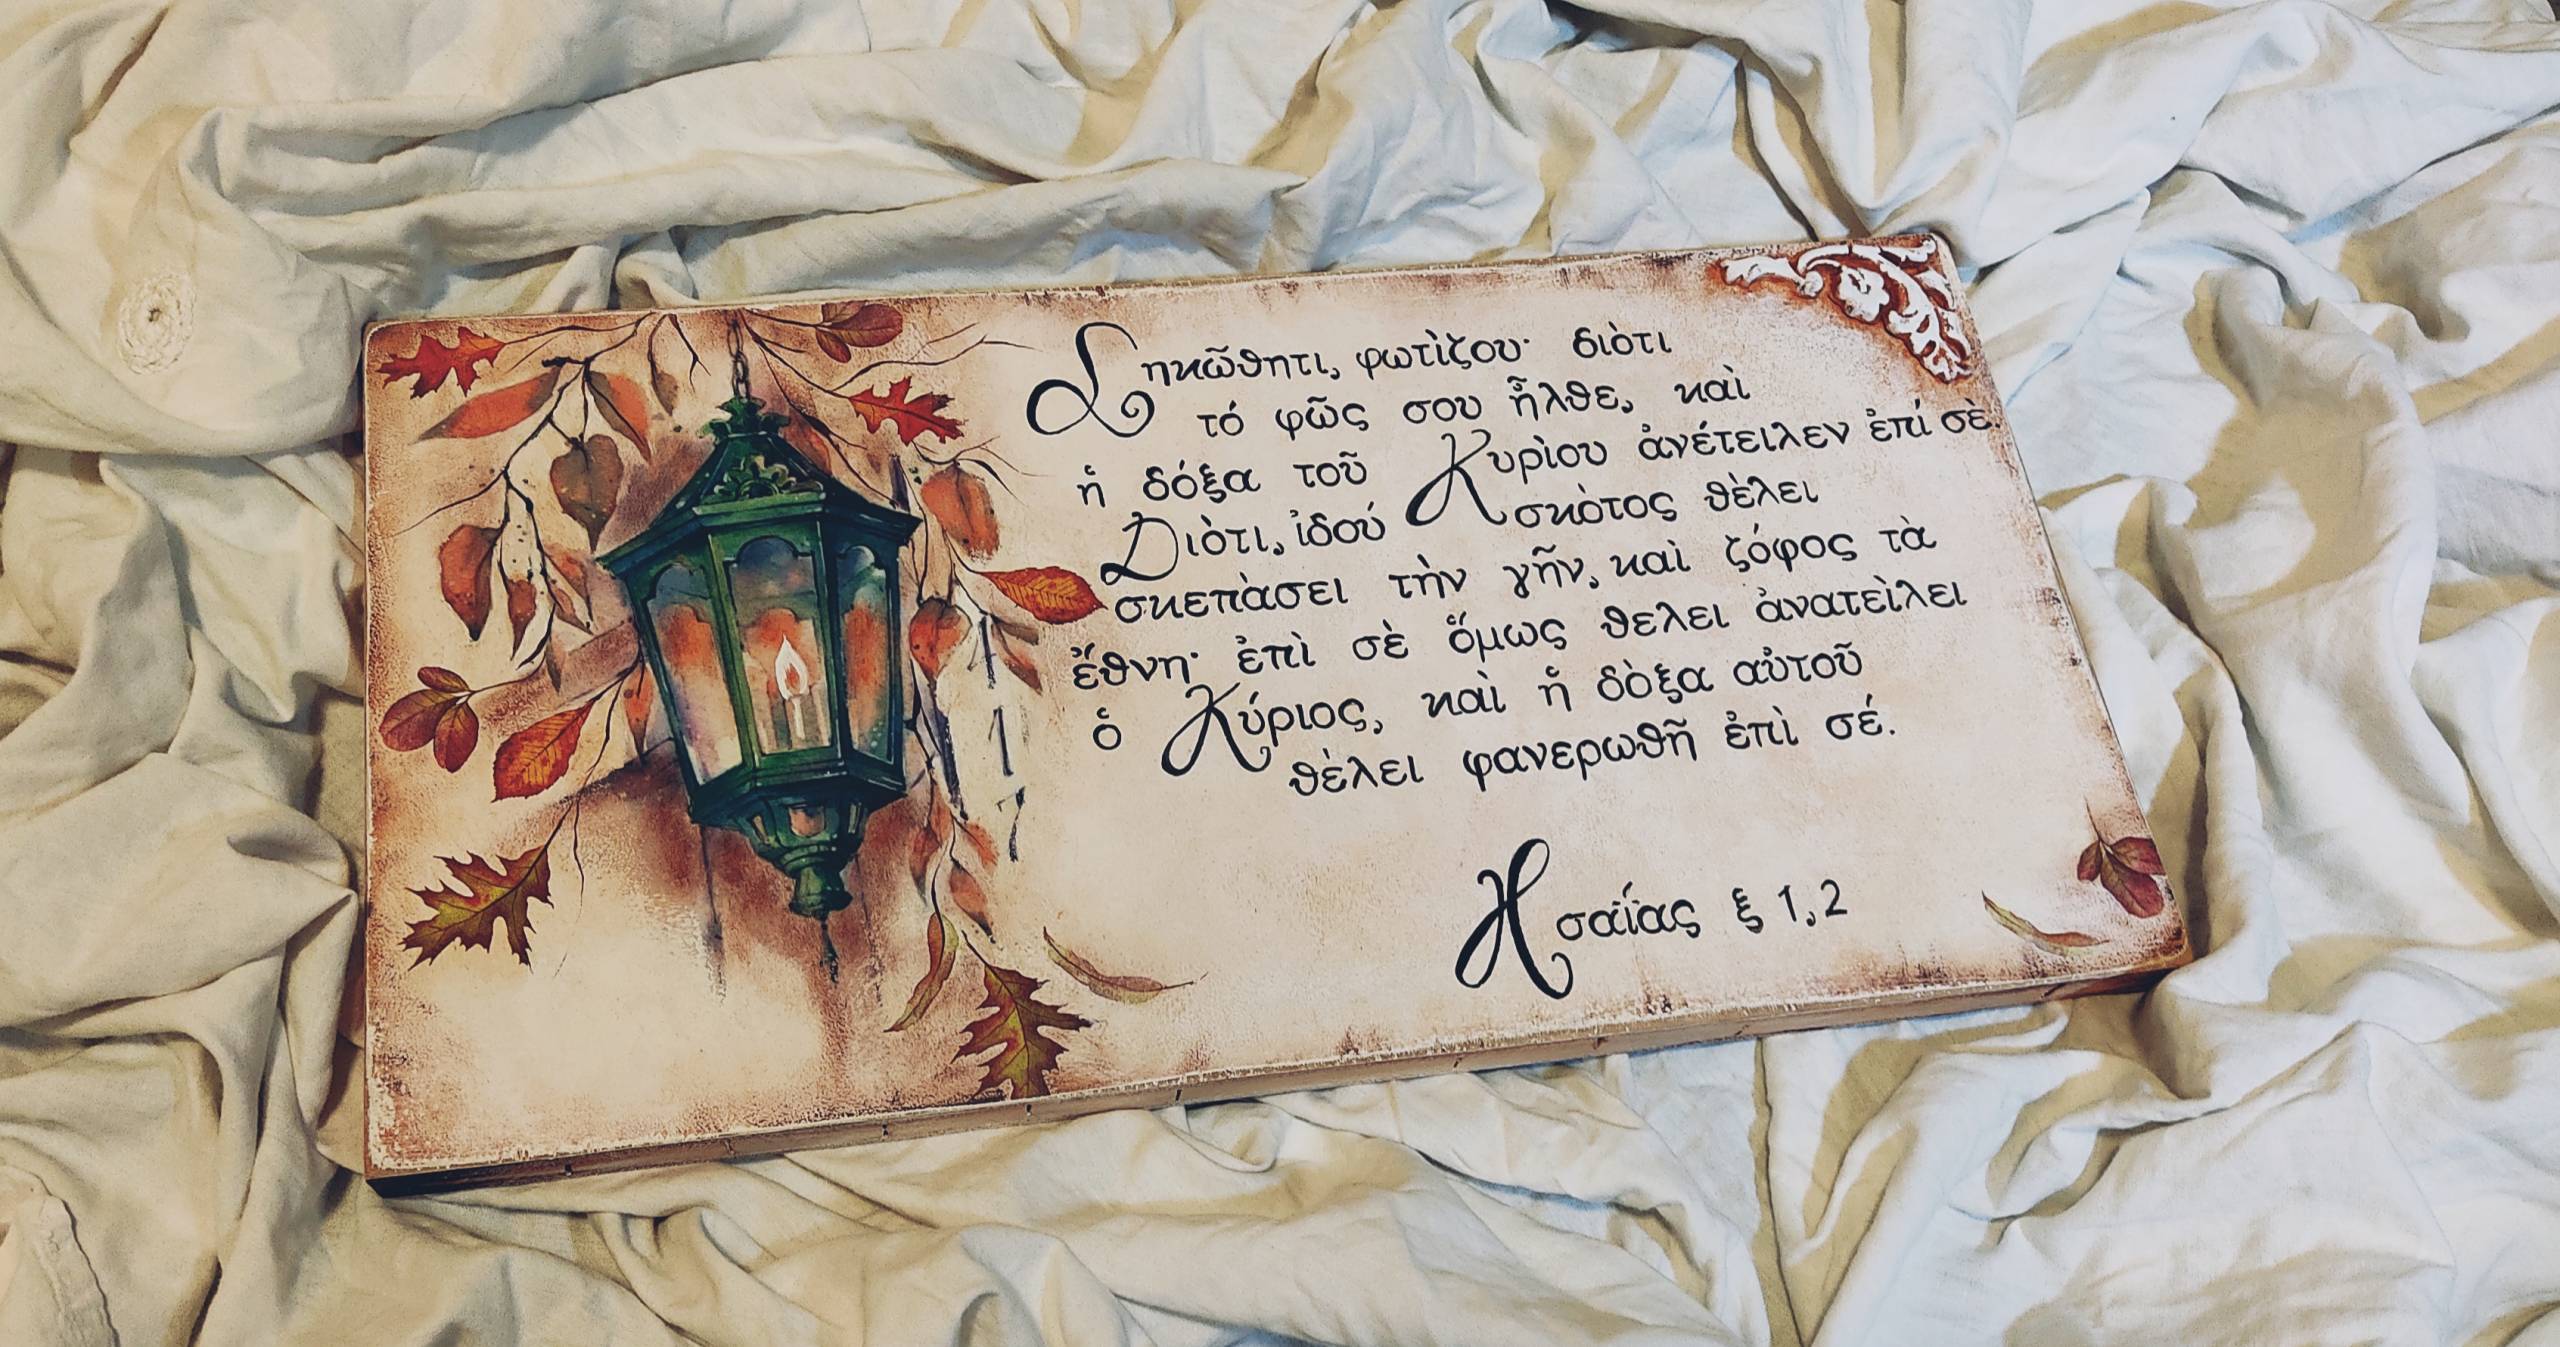 Σηκω̃θητι, φωτὶζου· διὸτι
τό φω̃ς σου ἦλθε, καὶ
ἡ δόξα του̃ Κυρὶου ἀνέτειλεν ἐπί σὲ.
Διὸτι, ἰδού σκὸτος θὲλει
σκεπὰσει τὴν γη̃ν, καὶ ζόφος τὰ
ἔθνη· ἐπὶ σὲ ὅμως θελει ἀνατεὶλει
ὁ Κύριος, καὶ ἡ δὸξα αὐτου̃
θὲλει φανερωθη̃ ἐπὶ σέ.
Ησαΐας ξ 1,2